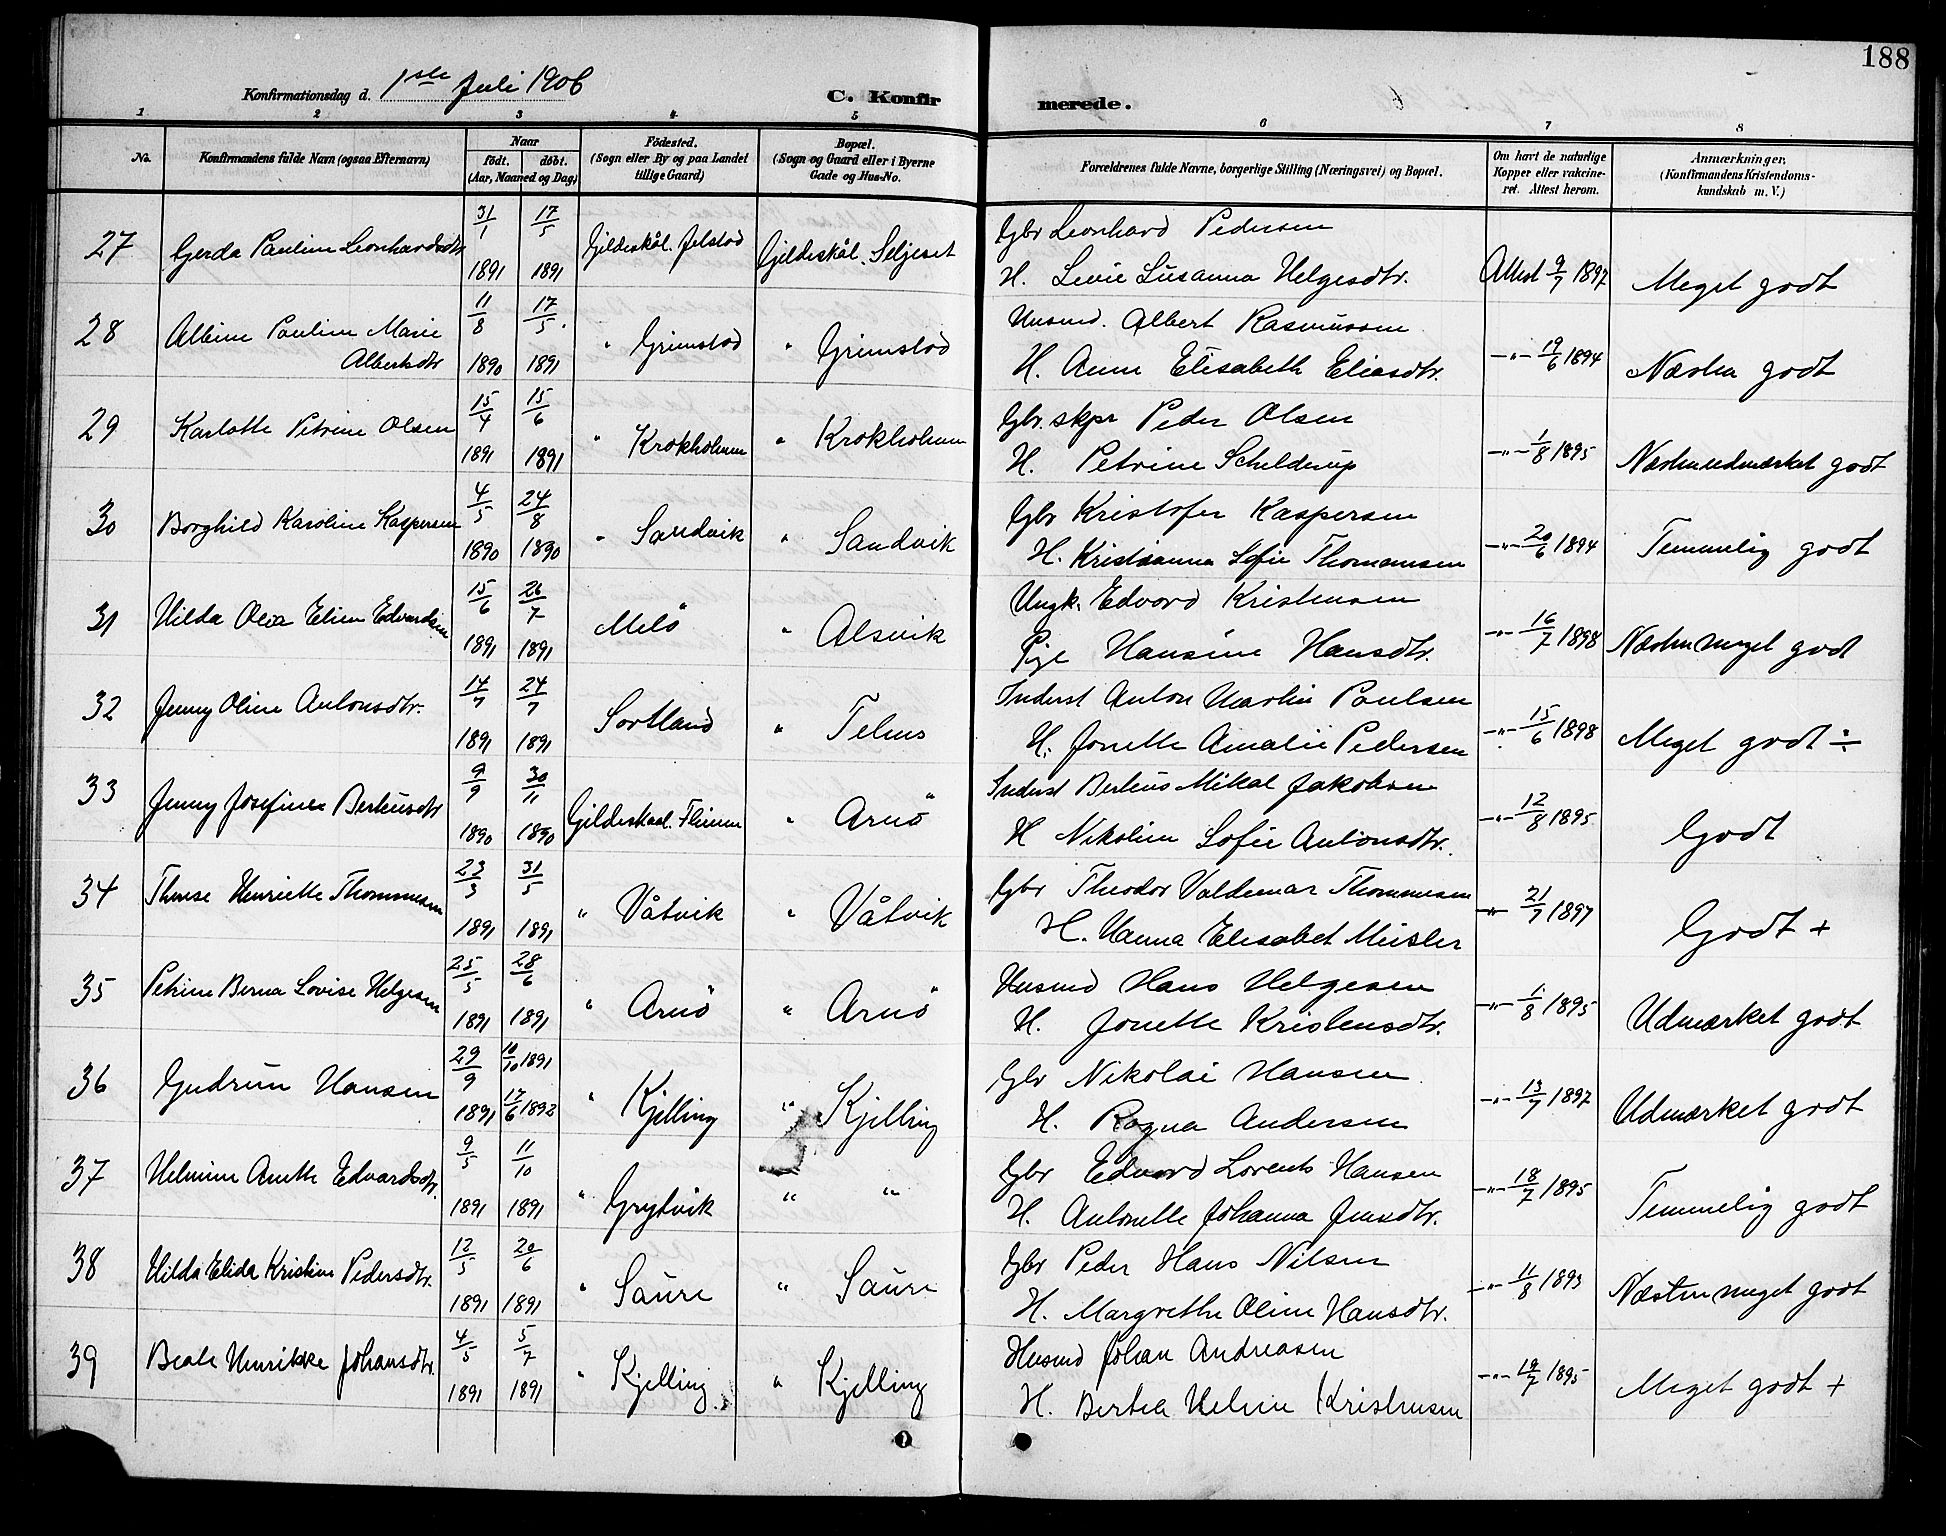 188
Konfirmationsdag d. 1ste Juli 1906
C. Konfirmerede.
1 2 3 4 5 6 7 8
No.
Konfirmandens fulde Navn (ogsaa Efternavn)
Naar
født. døbt.
(Aar, Maaned og Dag)
Fødested.
(Sogn eller By og paa Landet
tillige Gaard)
Bopæl.
(Sogn og Gaard eller i Byerne
Gade og Hus-No.
Forældrenes fulde Navne, borgerlige Stilling (Næringsvei) og Bopæl.
Om havt de naturlige
Kopper eller vakcine-
ret. Attest herom.
Anmærkninger.
(Konfirmandens Kristendoms-
kundskab m. V.)
27 Gerda Pauline Leonhardsdtr 31/1 1891 17/5 1891 Gildeskål. Jelstad Gildeskål. Seljeset Gbr Leonhard Pedersen
H. Levie Susanna Helgesdtr. Attest 9/7 1897 Meget godt
28 Albine Pauline Marie
Albertsdtr 11/8 1890 17/5 1891 " Grimstad " Grimstad Husmd. Albert Rasmussen
H. Anne Elisabeth Eliasdtr. -"- 19/6 1894 Næsten godt
29 Karlotte Petrine Olsen 15/4 1891 15/6 1891 " Krokholmen " Krokholmen Gbr. skpr Peder Olsen
H. Petrine Schelderup -"- 1/8 1895 Næsten udmærket godt
30 Borghild Karoline Kaspersen 4/5 1890 24/8 1890 " Sandvik " Sandvik Gbr Kristofer Kaspersen
H. Kristianna Sofie Thomassen -"- 20/6 1894 Temmelig godt
31 Hilda Olea Eline Edvardsen 15/6 1891 26/7 1891 Melö " Alsvik Ungk. Edvard Kristensen
Pige Hansine Hansdtr. -"- 16/7 1898 Næsten meget godt
32 Jenny Oline Antonsdtr. 14/7 1891 24/7 1891 Sortland " Telnes Inderst Anton Martin Paulsen
H. Jonette Amalie Pedersen -"- 15/6 1898 Meget godt ÷
33 Jenny Josefine Berteusdtr 9/9 1890 30/11 1890 Gildeskaal. Fleinen " Arnö Inderst Berteus Mikal Jakobsen
H Nikoline Sofie Antonsdtr. -"- 12/8 1895 Godt
34 Therese Henriette Thommesen 23/3 1891 31/5 1891 " Våtvik " Våtvik Gbr Theodor Valdemar Thommesen
H. Hanna Elisabet Meisler -"- 21/7 1897 Godt +
35 Petrine Berna Lovise Helgesen 25/5 1891 28/6 1891 " Arnö " Arnö Husmd Hans Helgesen
H. Jonette Kristensdtr. -"- 1/8 1895 Udmærket godt
36 Gudrun Hansen 29/9 1891 10/10 1891 17/6 1892 " Kjelling " Kjelling Gbr Nikolai Hansen
H. Ragna Andersen -"- 13/7 1897 Udmærket godt
37 Helmine Anette Edvardsdtr. 9/5 1891 11/10 1891 " Grytvik " " Gbr Edvard Lorents Hansen
H. Antonette Johanna Jensdtr. -"- 18/7 1895 Temmelig godt
38 Hilda Elida Kristine Pedersdtr. 12/5 1891 20/6 1891 " Saure " Saure Gbr Peder Hans Nilsen
H. Margrethe Oline Hansdtr. -"- 11/8 1893 Næsten meget godt
39 Beate Henrikke Johansdtr. 4/5 1891 5/7 1891 " Kjelling " Kjelling Husmd Johan Andreasen
H. Bertea Heline Kristensen -"- 19/7 1895 Meget godt +